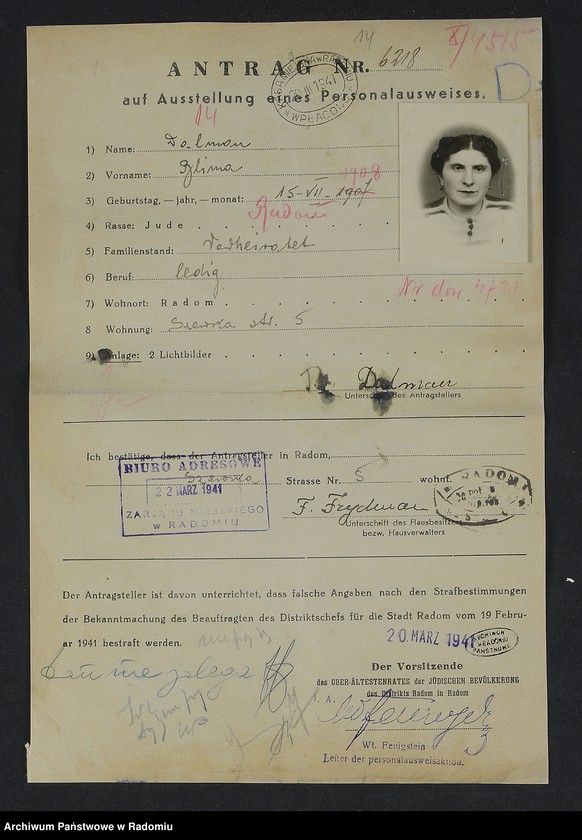 14
X/4515
ANTRAG NR. 6218
auf Ausstellung eines Personalausweises.
20 III 1941
WPŁACONO
14
1) Name: Dalman
2) Vorname: Blima
1908
3) Geburtstag, — jahr, — monat: 15-VII-1907
Radom
4) Rasse: Jude
5) Familienstand: Verheiratet
6) Beruf: ledig
Nr dow.
7) Wohnort: Radom
8 Wohnung: Szewska str. 5
9) Anlage: 2 Lichtbilder
Dalman
Unterschrift des Antragstellers
Ich bestätige, dass der Antragsteller in Radom,
Szewska Strasse Nr. 5 wohnt.
BIURO ADRESOWE
22 MÄRZ 1941
ZARZĄDU MIEJSKIEGO
W RADOMIU
F. Frydman
Unterschrift des Hausbesitzers
bezw. Hausverwalters
Der Antragsteller ist davon unterrichtet, dass falsche Angaben nach den Strafbestimmungen
der Bekanntmachung des Beauftragten des Distriktschefs für die Stadt Radom vom 19 Febru-
ar 1941 bestraft werden.
20 MÄRZ 1941
ARCHIWUM
PAŃSTWOWE
Der Vorsitzende
des OBER-ÄLTESTENRATES der JÜDISCHEN BEVÖLKERUNG
des Distrikts Radom in Radom
I. A.
Wł. Fenigstein
Leiter der personalausweisaktion.
Archiwum Państwowe w Radomiu